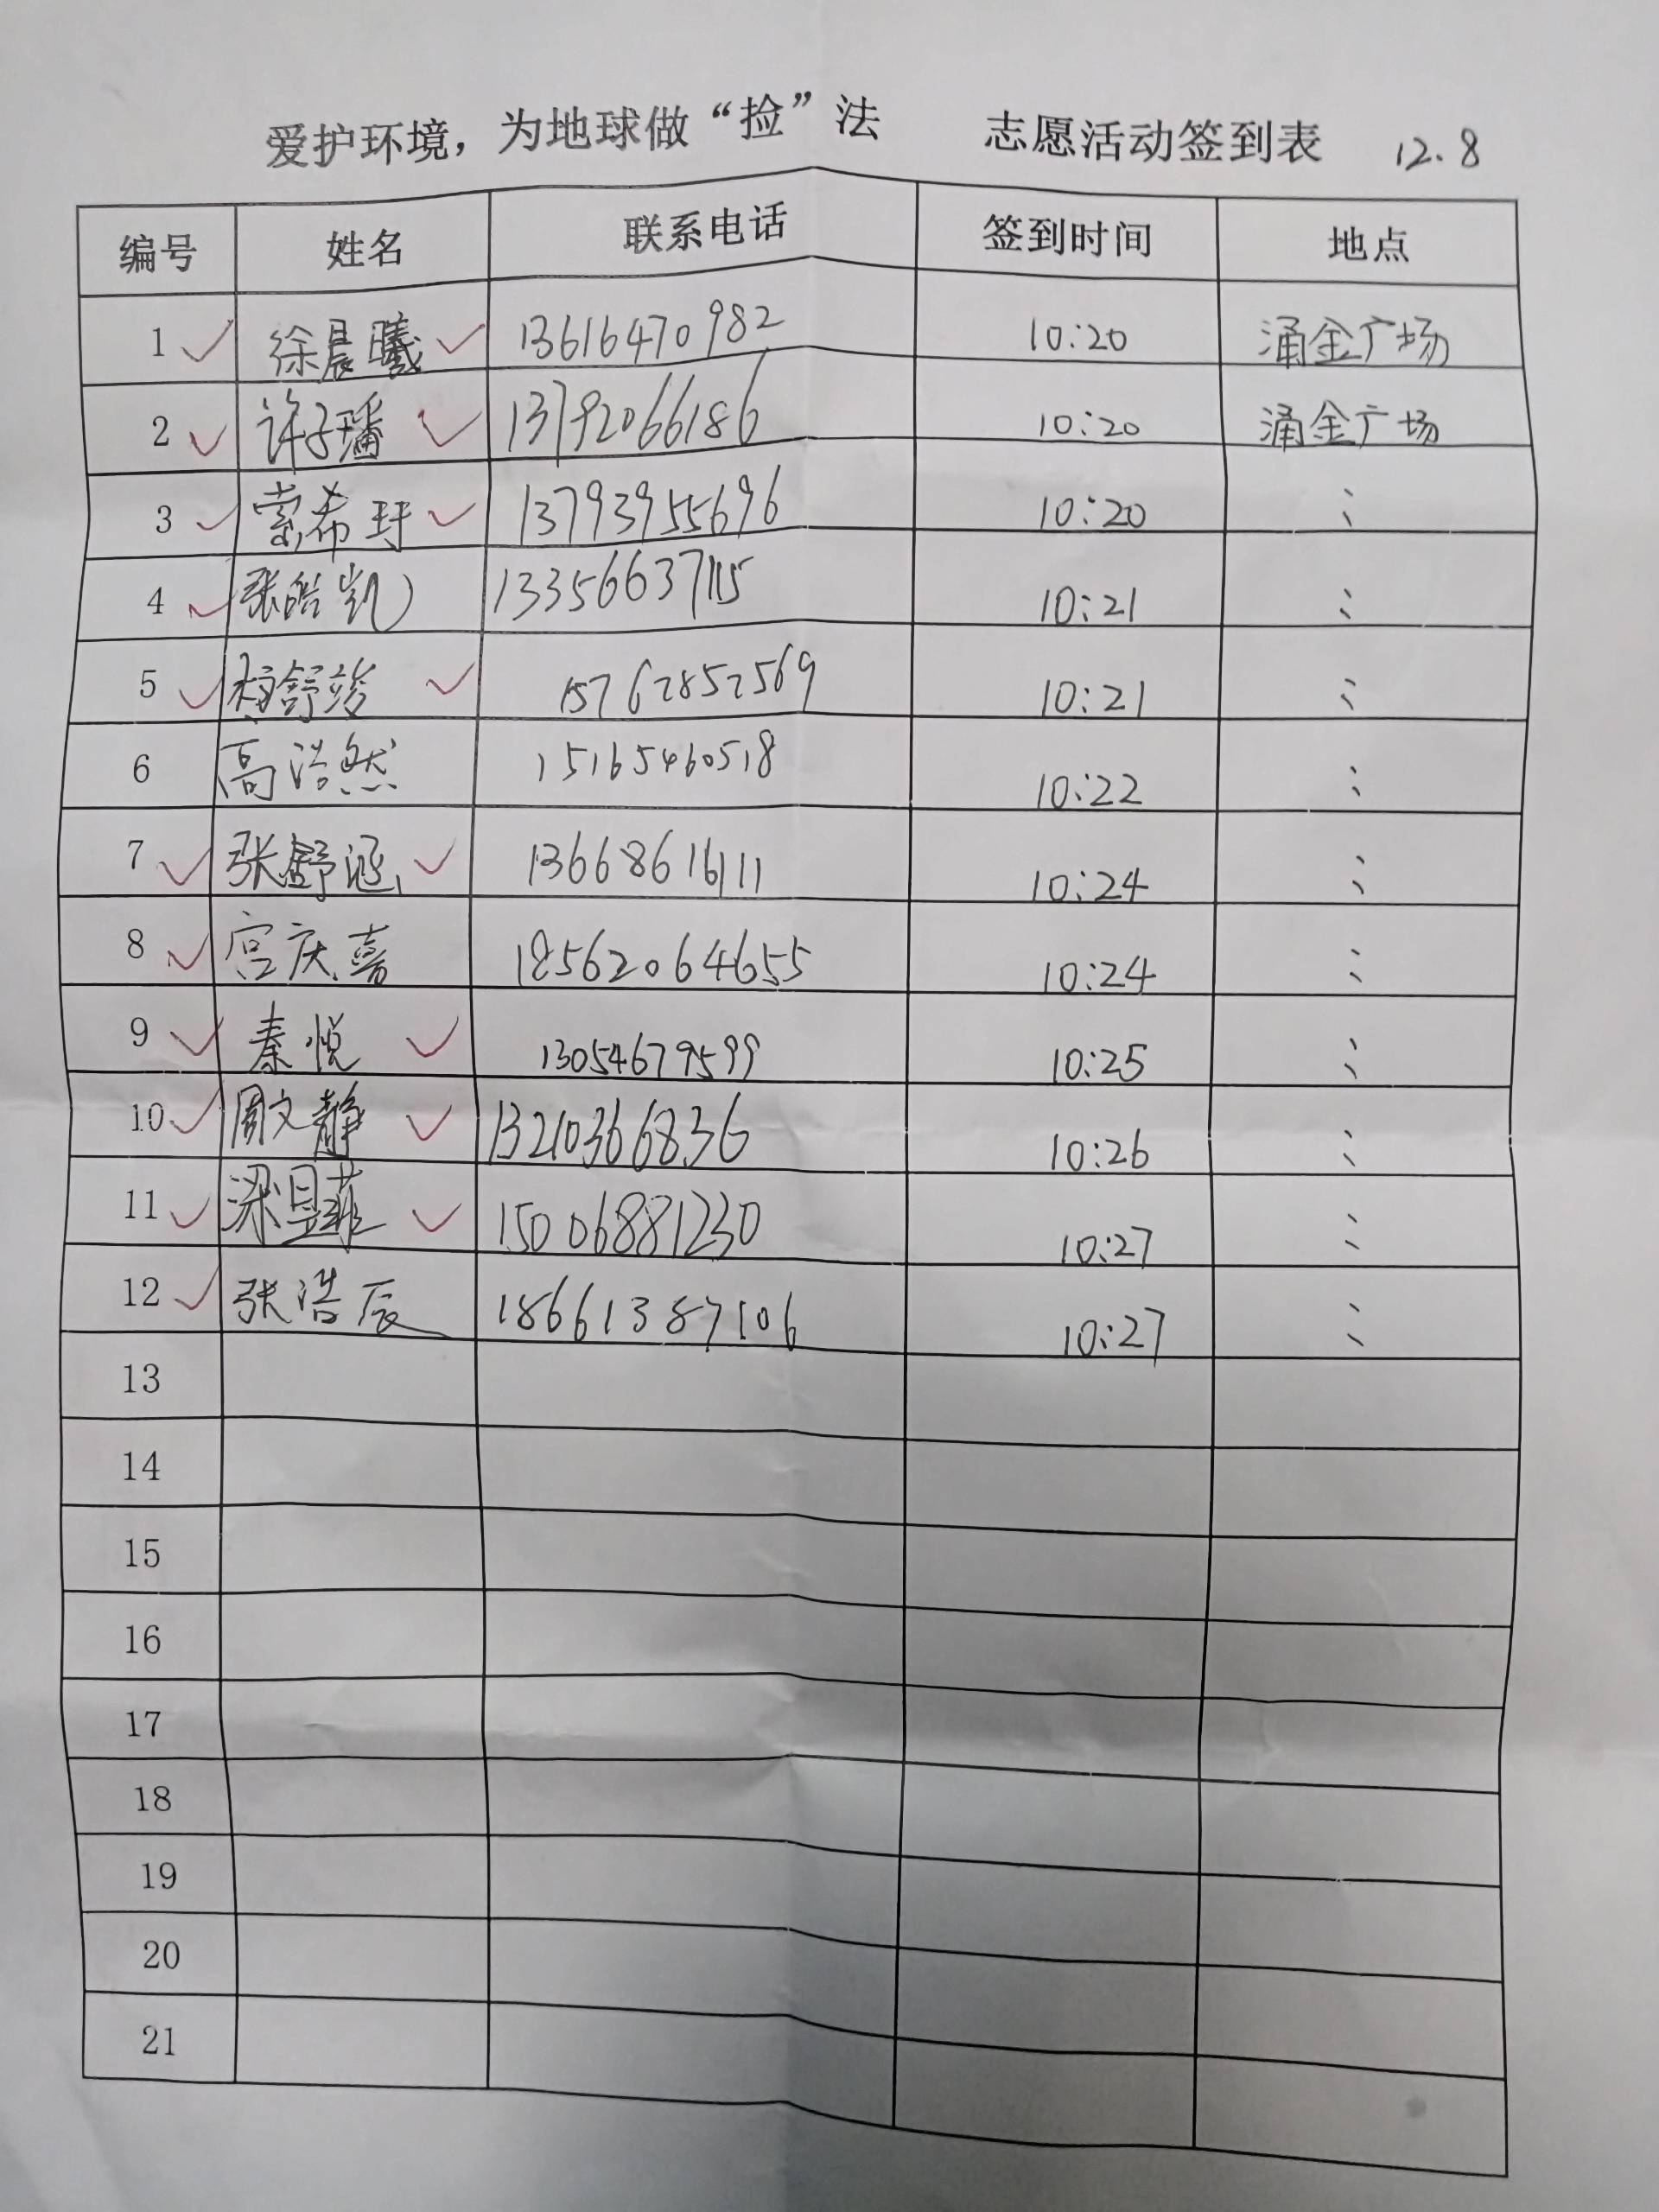 爱护环境，为地球做“捡”法 志愿活动签到表 12.8
编号 姓名 联系电话 签到时间 地点
1 徐晨曦 13616470982 10:20 涌金广场
2 许子璠 13792066186 10:20 涌金广场
3 索希玗 13793955696 10:20 ：
4 张皓凯 13356637115 10:21 ：
5 舒竣 15762852569 10:21 ：
6 高浩然 15165460518 10:22 ：
7 张舒涵 13668616111 10:24 ：
8 宫庆喜 18562064655 10:24 ：
9 秦悦 13054679599 10:25 ：
10 周文静 13210366836 10:26 ：
11 梁昱菲 15006881230 10:27 ：
12 张浩辰 18661387106 10:27 ：
13
14
15
16
17
18
19
20
21